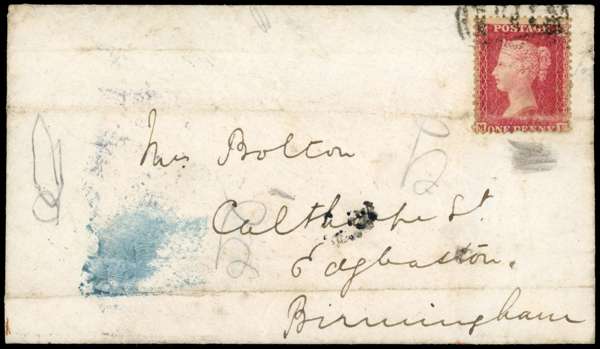 POSTAGE
ONE PENNY
Mrs Bolton
Calthorpe St.
Edgbaston.
Birmingham